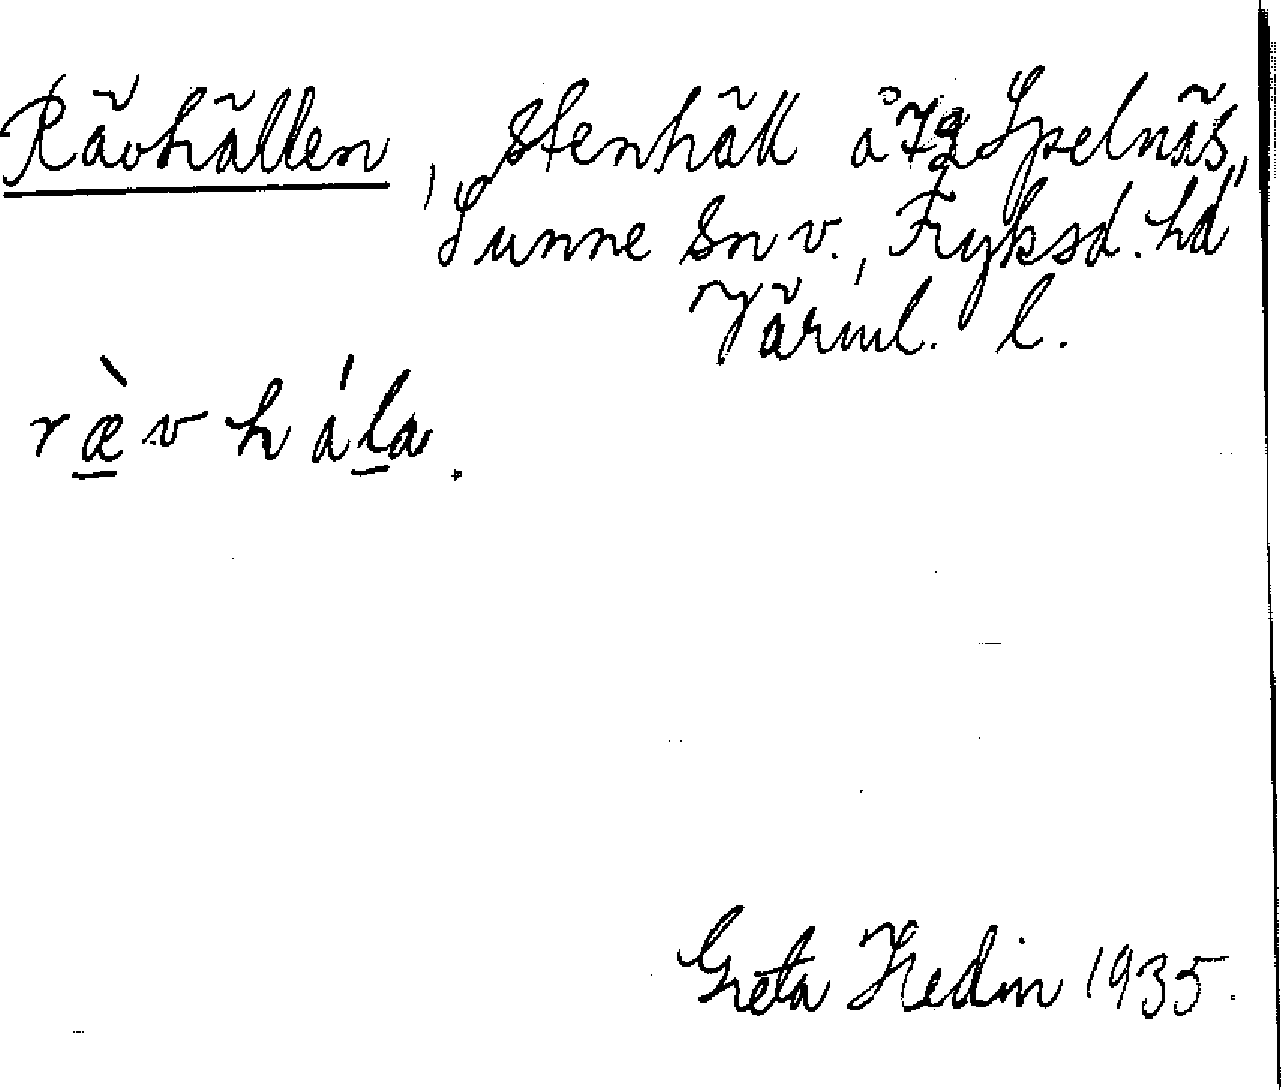 Rävhällen, stenhäll å 72 Spelnäs,
Sunne sn v., Fryksd. hd
Värml. l.
ræ̀vhála.
Greta Hedin 1935.